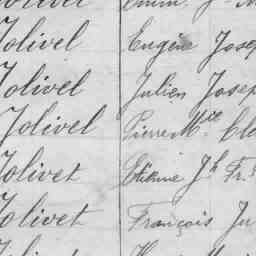 Jolivel Eugène Josep
Jolivel Julien Josep
Jolivel Pierre Mie Clo
Jolivet Etienne Jh Frs
Jolivet François Ju